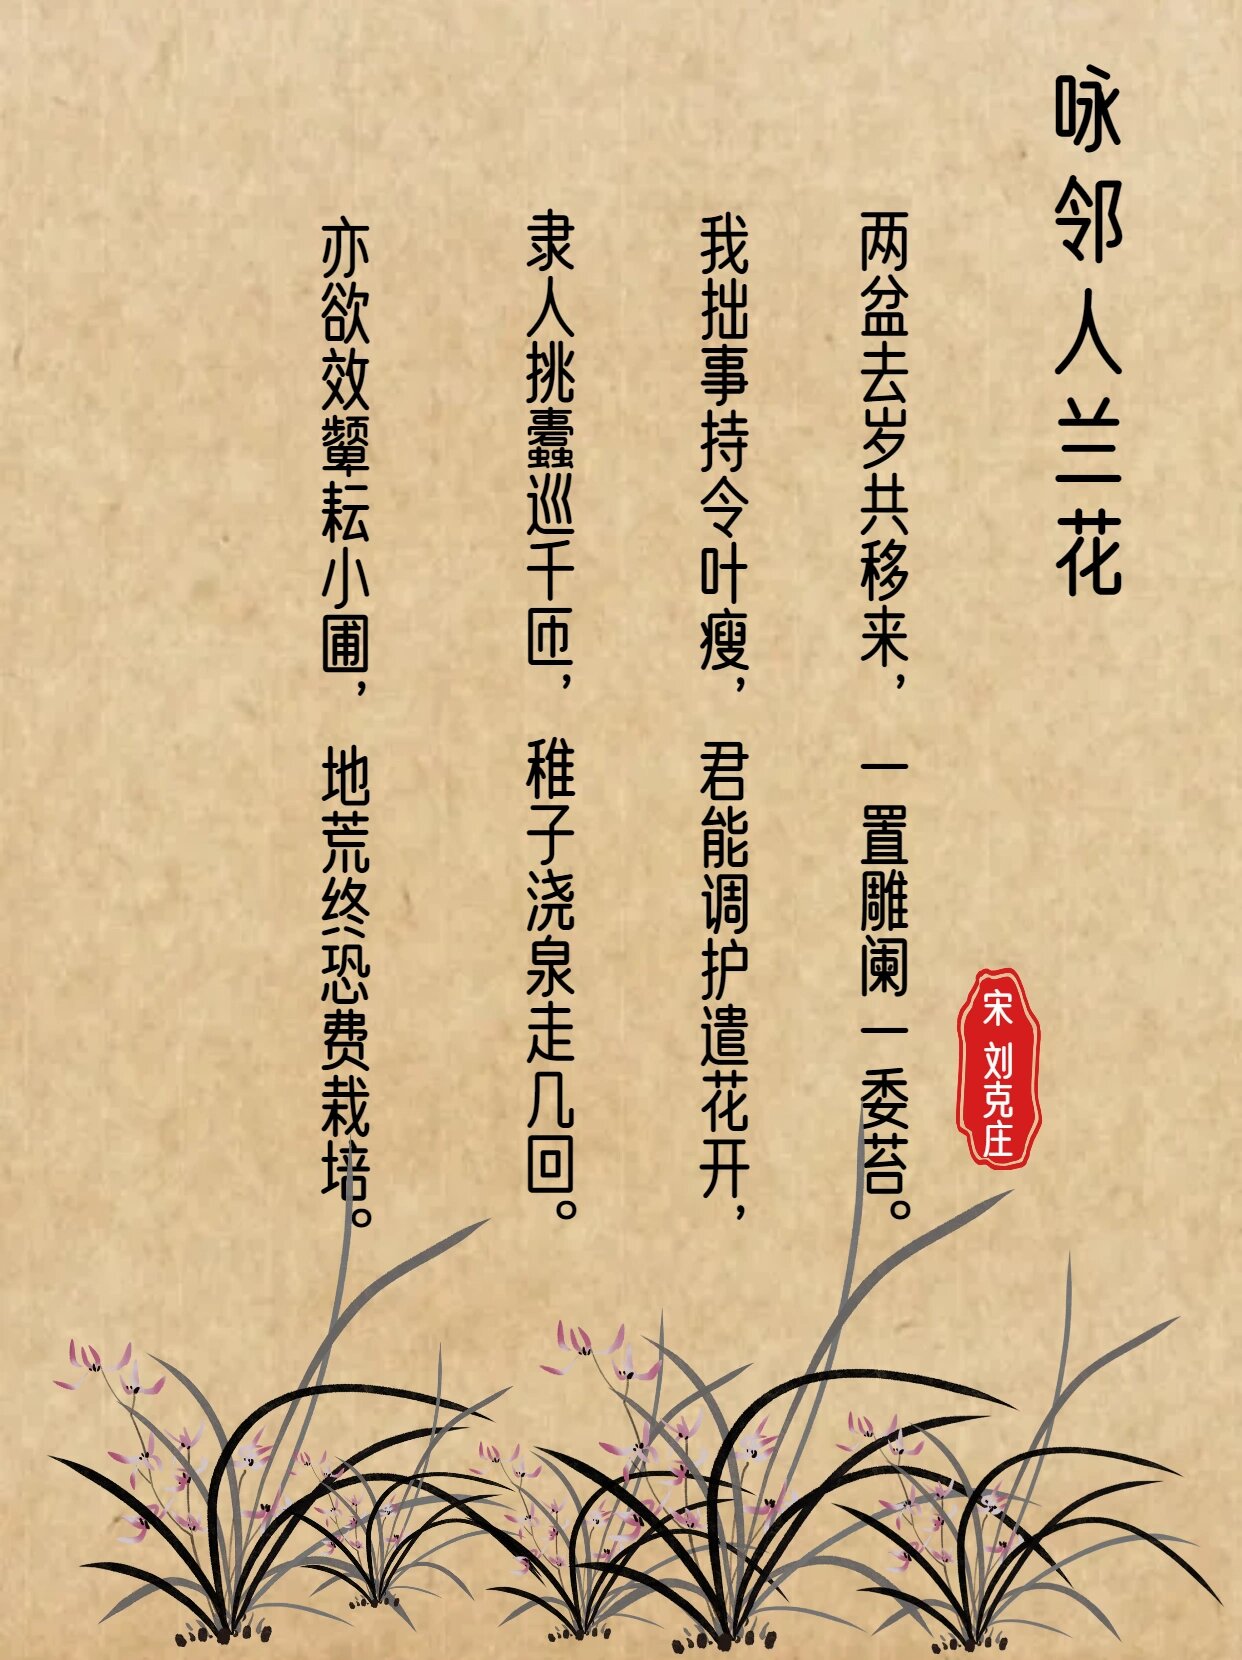 咏邻人兰花
宋 刘克庄
两盆去岁共移来，一置雕阑一委苔。
我拙事持令叶瘦，君能调护遣花开，
隶人挑蠹巡千匝，稚子浇泉走几回。
亦欲效颦耘小圃，地荒终恐费栽培。